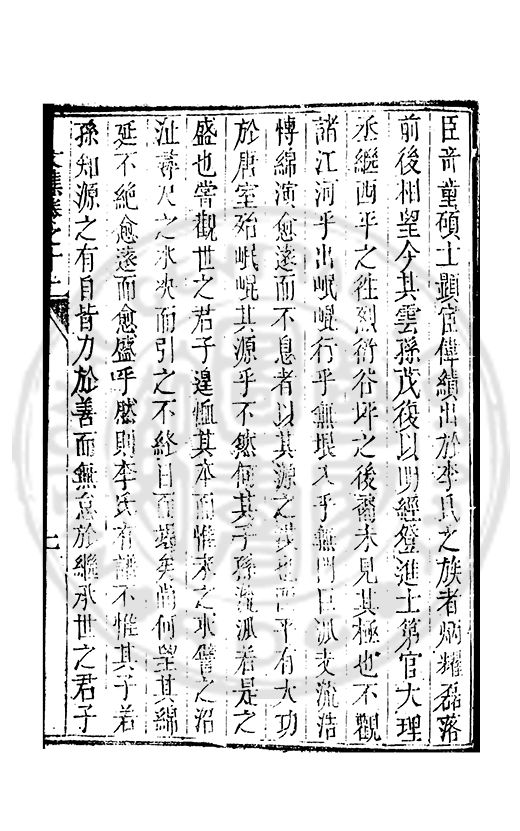 臣奇童碩士顯官偉績出於李氏之族者炳耀磊落
前後相望今其雲孫茂復以明經登進士第官大理
丞繼西平之往烈衍谷坪之後裔未見其極也不觀
諸江河乎出岷崐行乎無垠入乎無門巨派支流浩
愽綿演愈遠而不息者以其源之洪也西平有大功
於唐室殆岷崐其源乎不然何其子孫流派若是之
盛也嘗觀世之君子遑恤其本而惟末之求譬之沼
沚尋尺之水決而引之不終日而竭矣尚何望其綿
延不絕愈遠而愈盛乎然則李氏有譜不惟其子若
孫知源之有自皆力於善而無怠於繼承世之君子
文集卷之十二